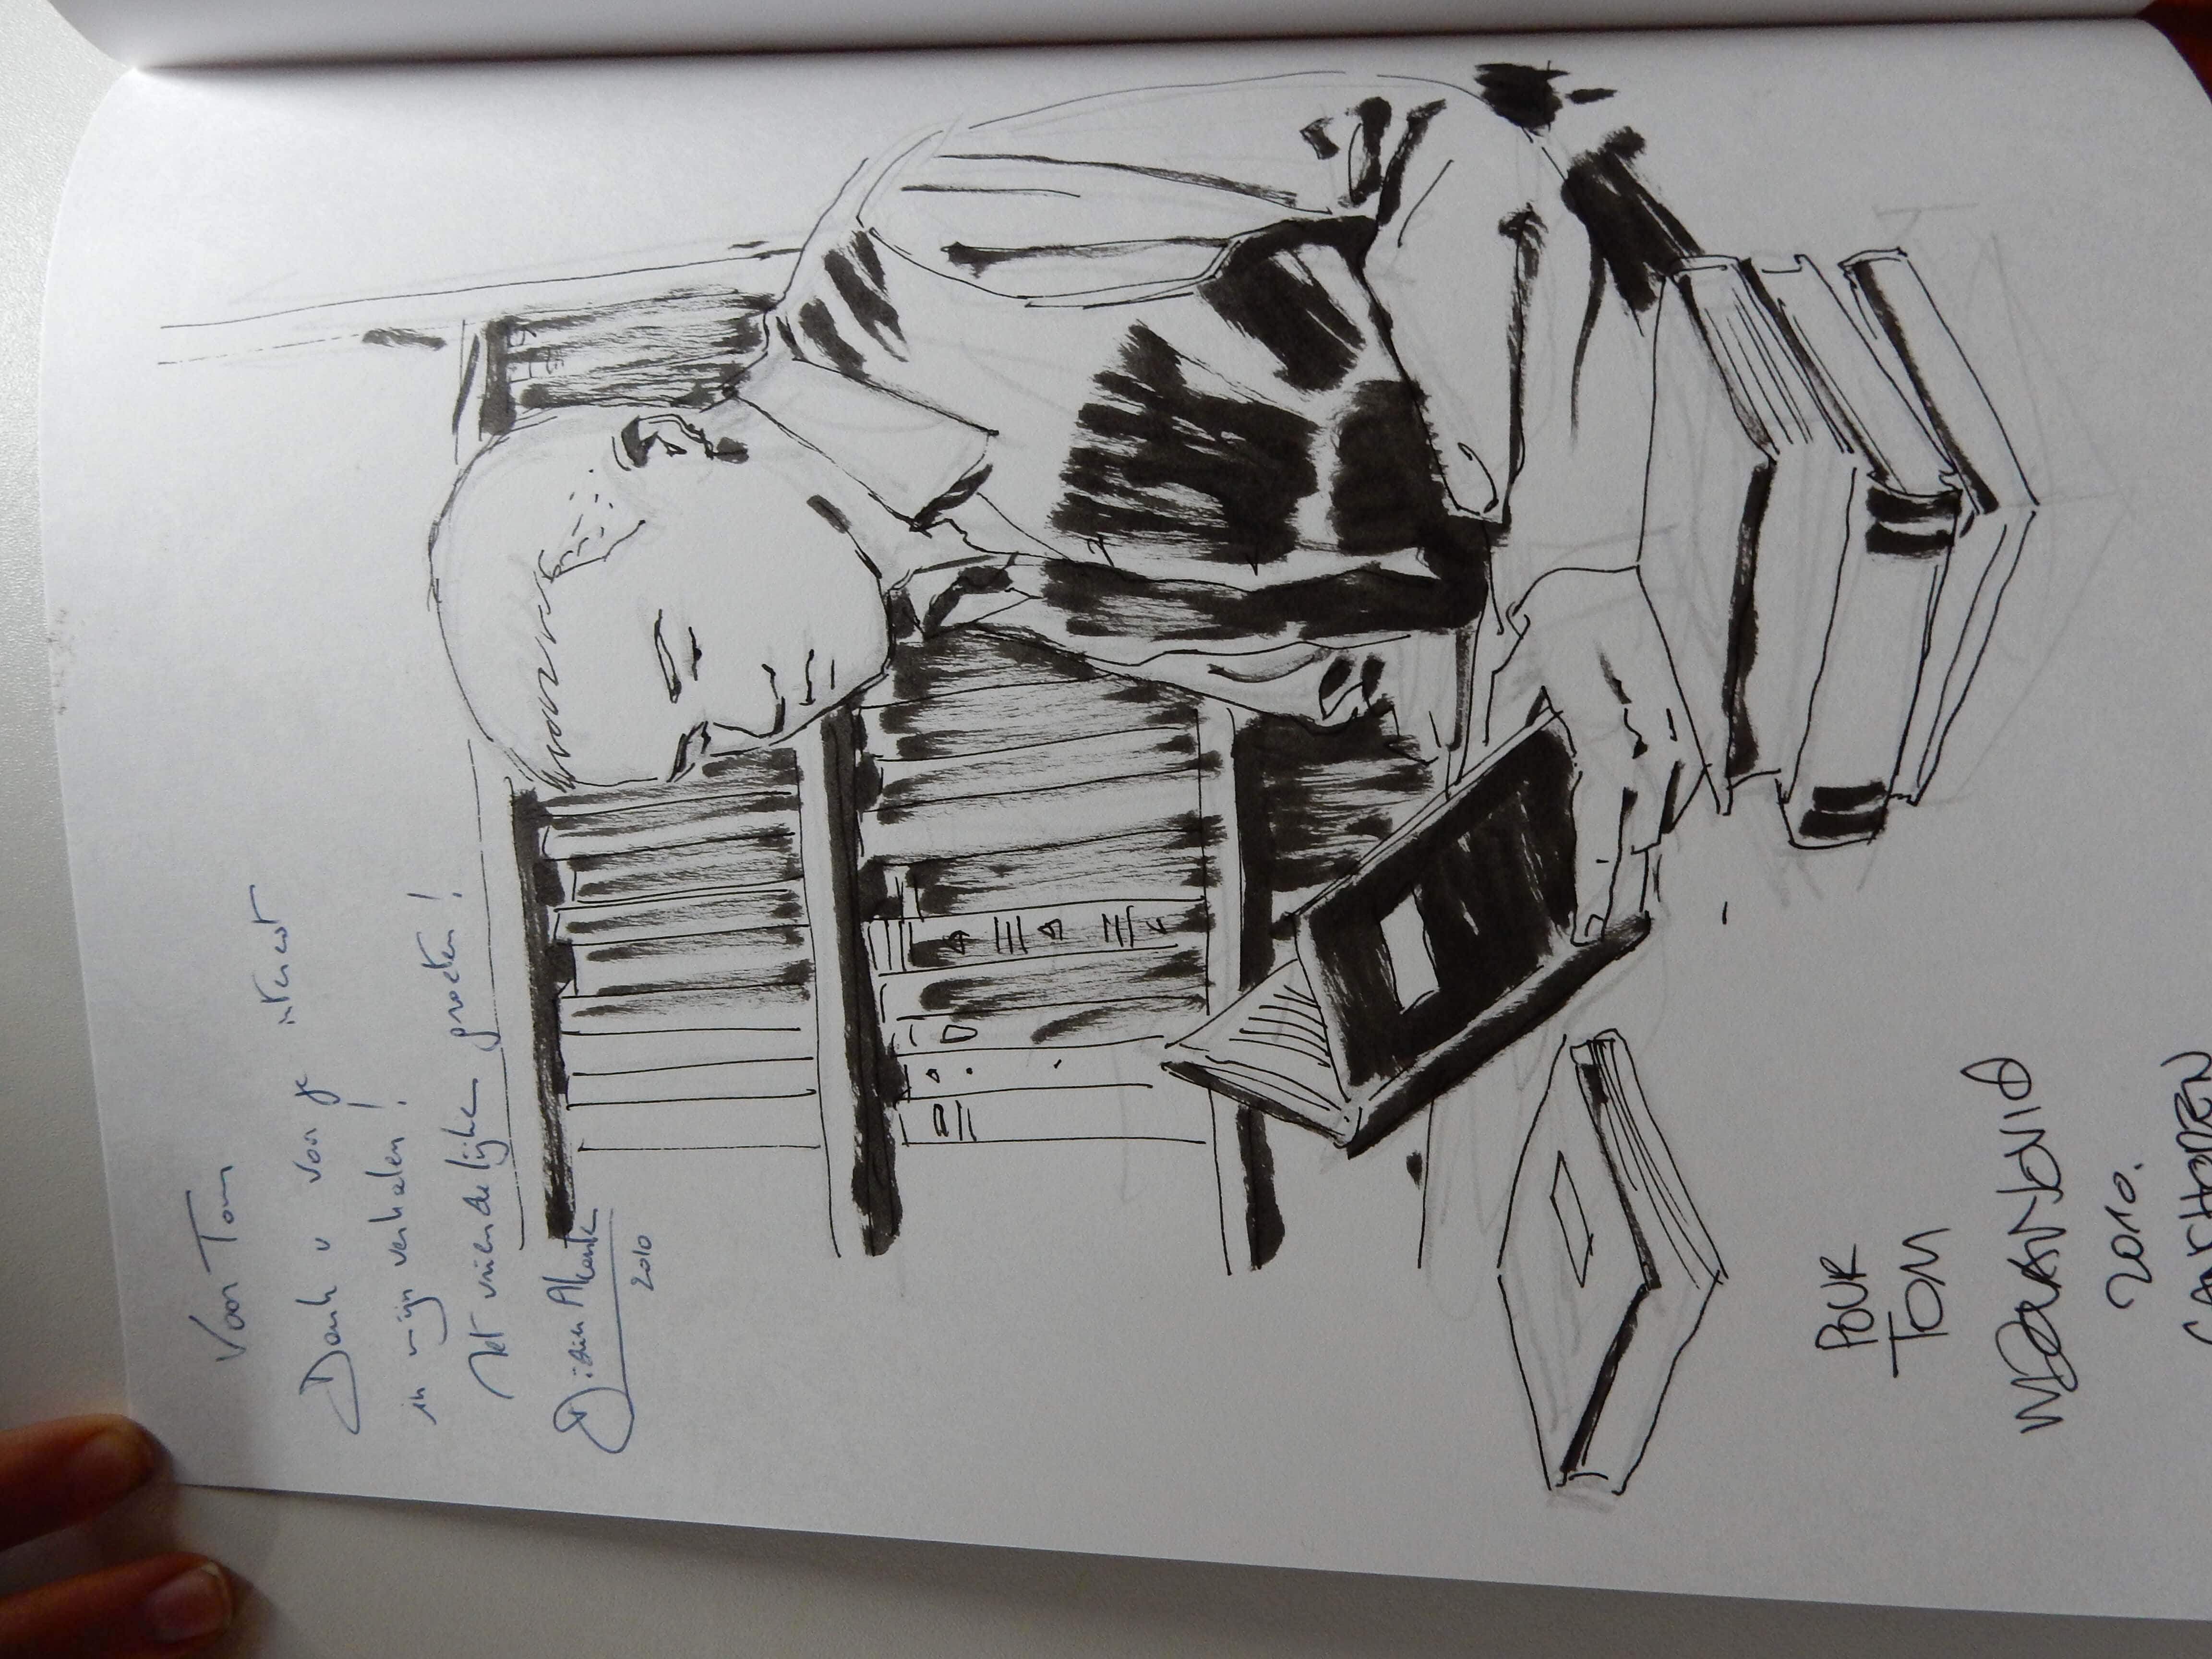 Voor Tom
Dank u voor je interest
in mijn verhalen !
Met vriendelijke groeten !
Didier Alcante
2010
POUR
TOM
MILOVANOVIĆ
2010.
GANSHOREN